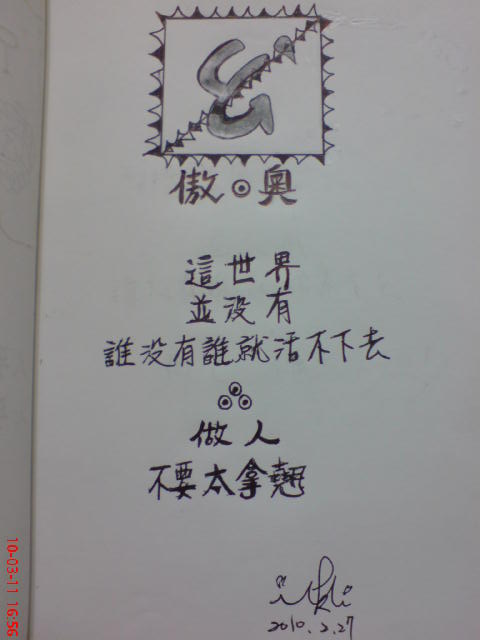 傲⊙奧
這世界
並没有
誰没有誰就活不下去
做人
不要太拿翹
2010.2.27
10-03-11 16:56